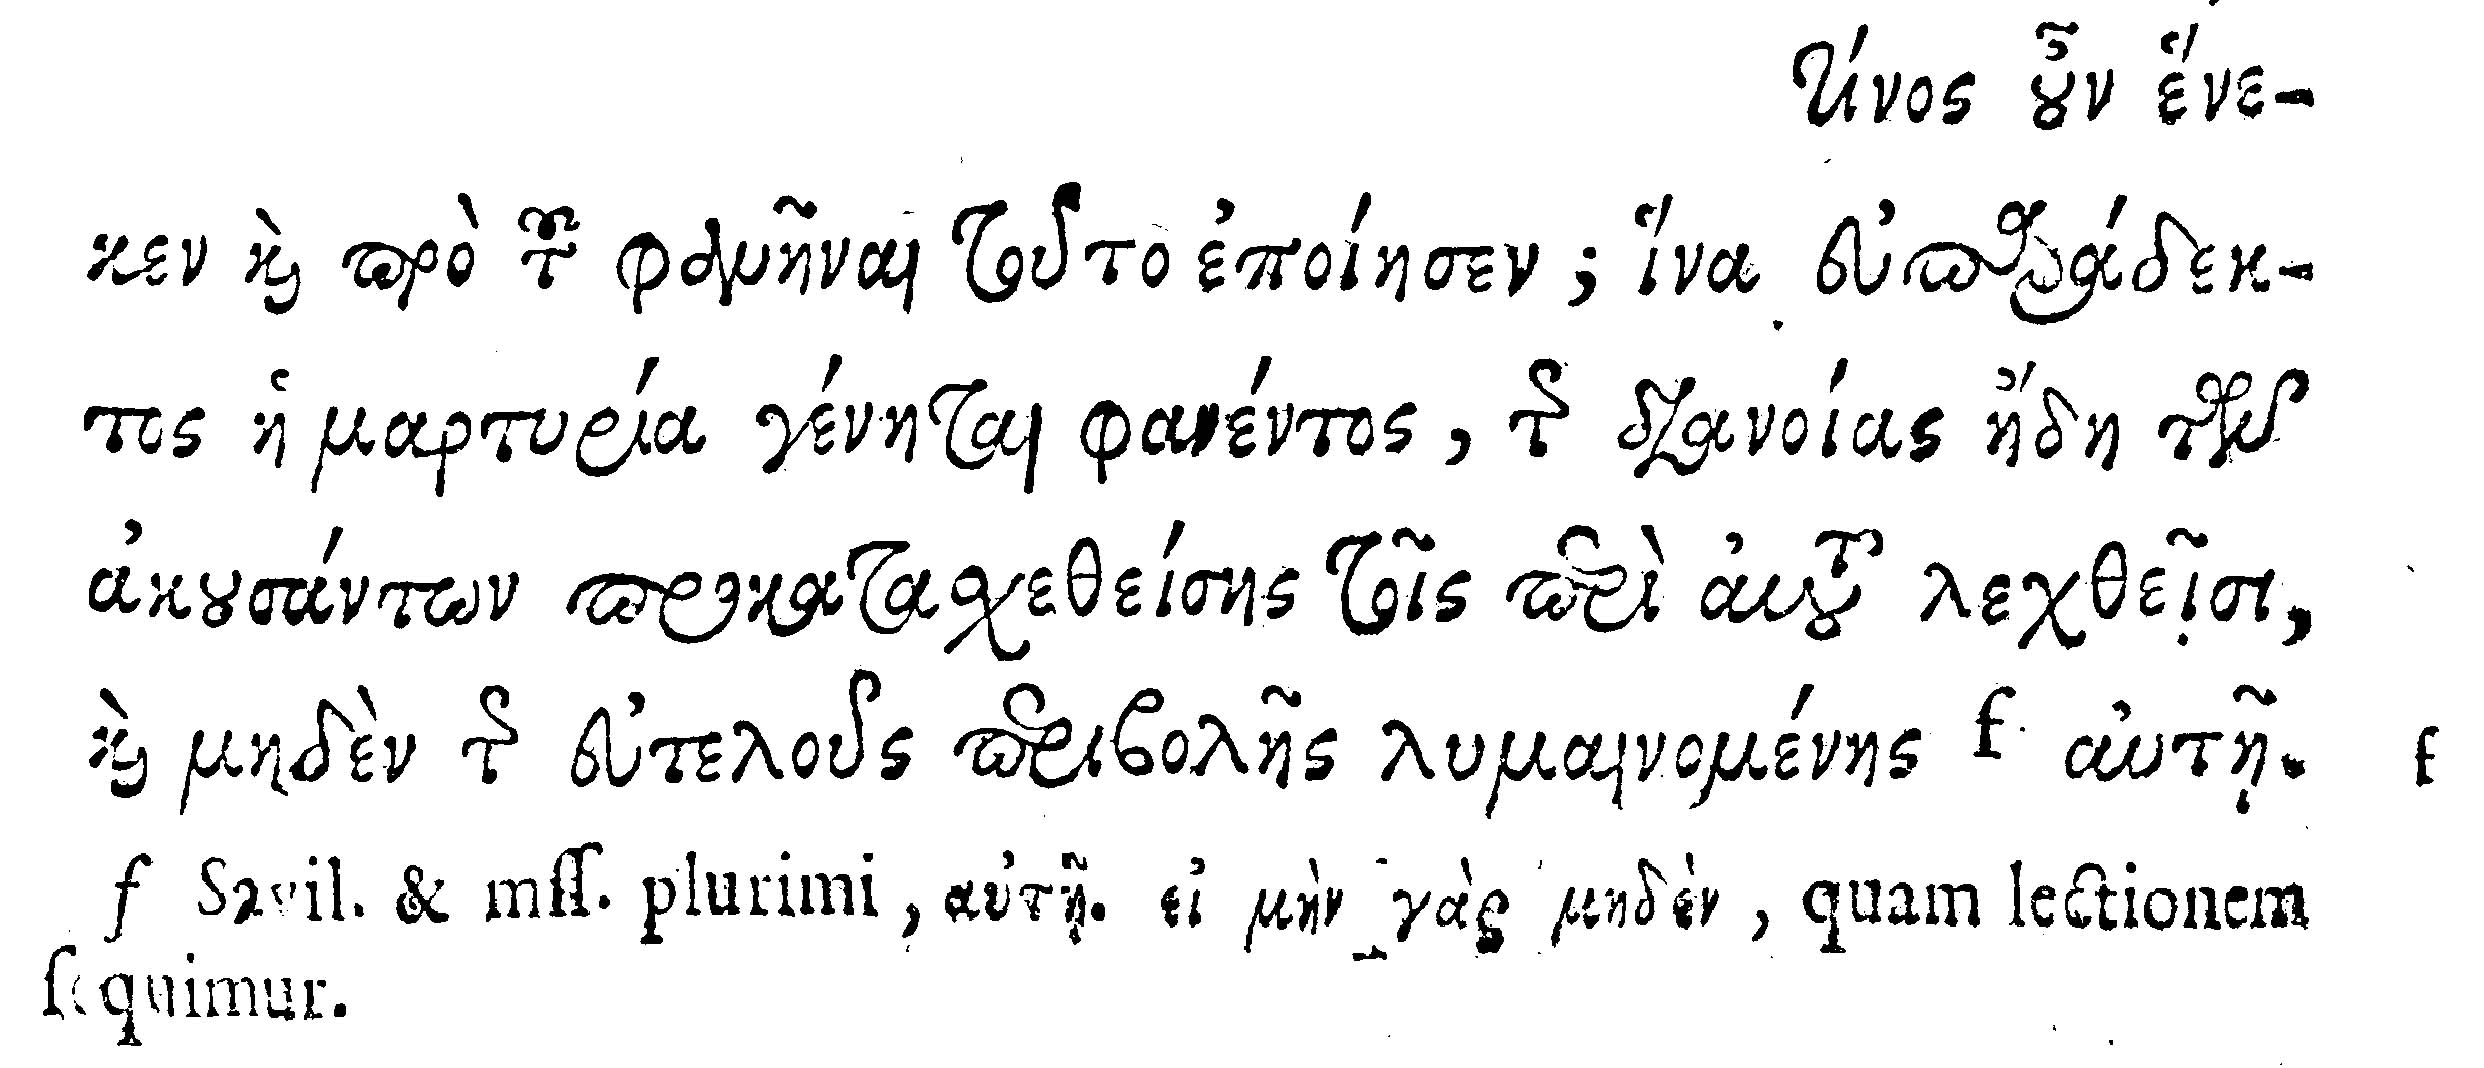 τίνος οὖν ἕνε-
κεν καὶ πρὸ τοῦ φανῆναι τοῦτο ἐποίησεν; ἵνα εὐπαράδεκ-
τος ἡ μαρτυρία γένηται φανέντος, τῆς διανοίας ἤδη τῶν
ἀκουσάντων προκατασχεθείσης τοῖς περὶ αὐτοῦ λεχθεῖσι,
καὶ μηδὲν τῆς εὐτελοῦς περιβολῆς λυμαινομένης f αὐτῇ. f
f Savil. & mſſ. plurimi, αὐτῇ. εἰ μὴν γὰρ μηδὲν, quam lectionem
ſequimur.